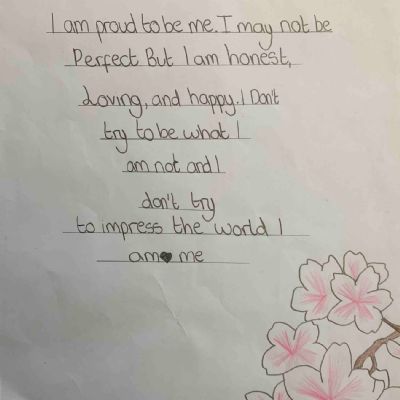 I am proud to be me. I may not be
Perfect But I am honest,
Loving, and happy. I Don't
try to be what I
am not and I
don't try
to impress the world I
am me